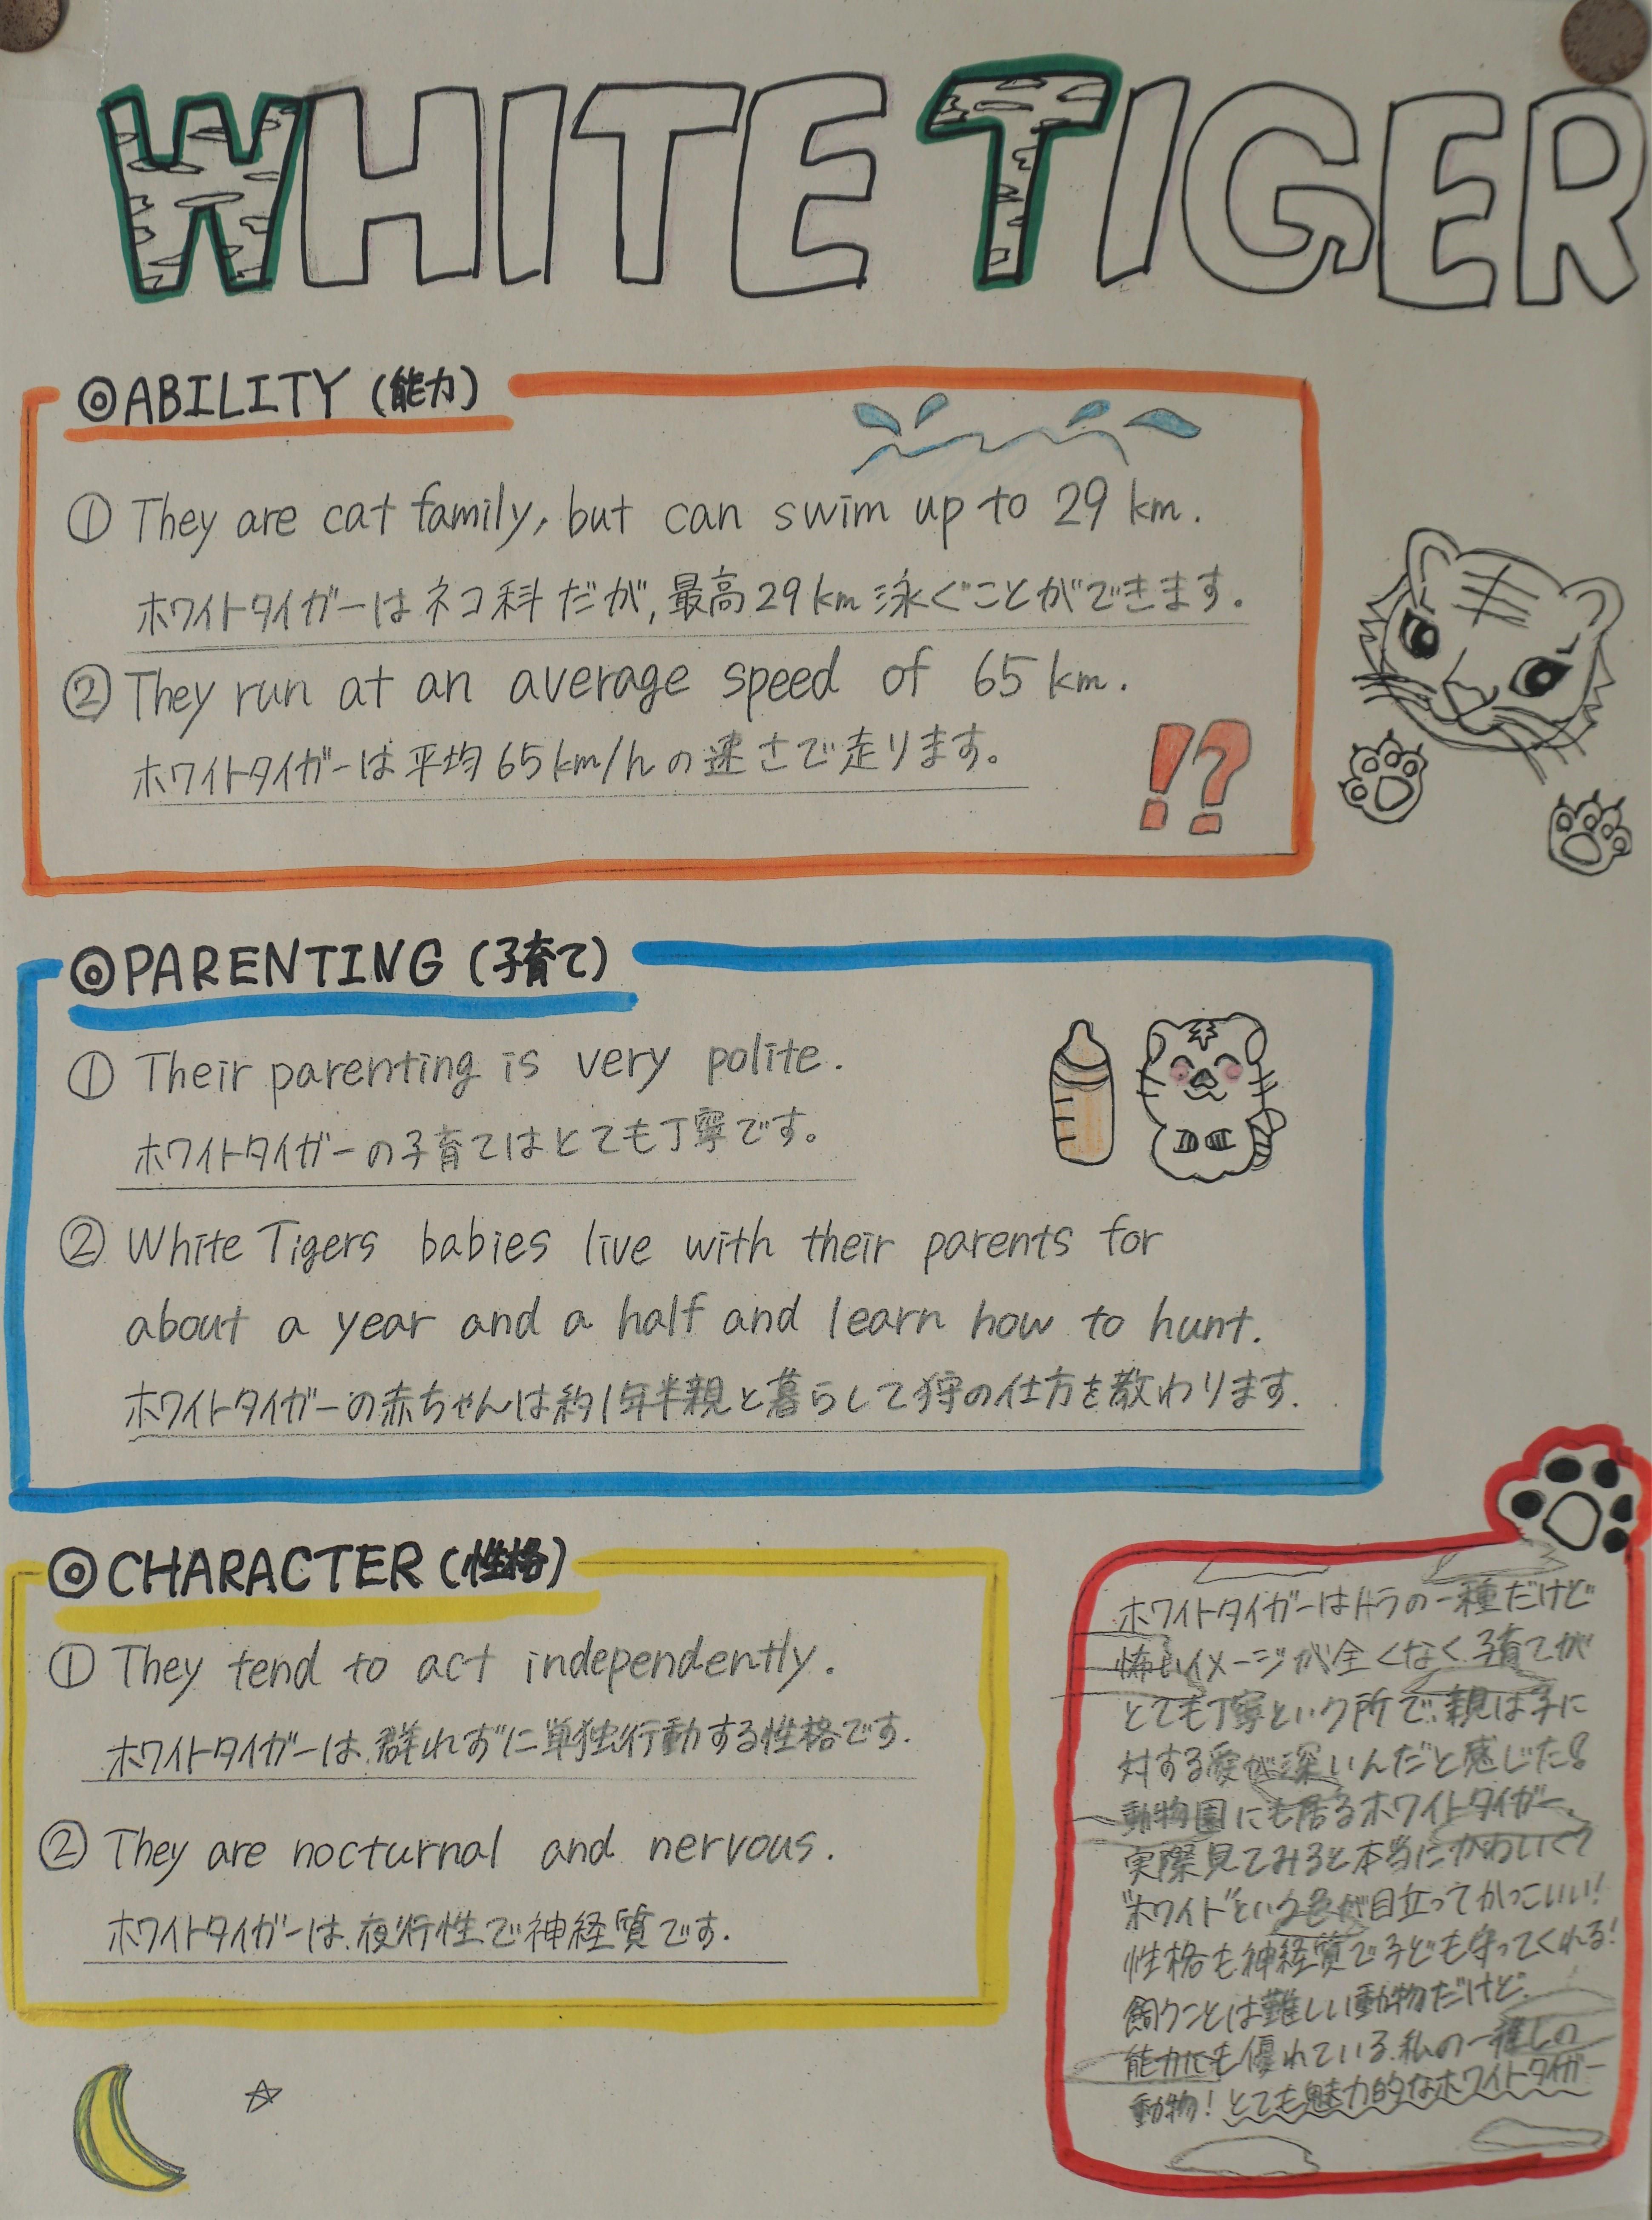 WHITE TIGER
◎ABILITY (能力)
① They are cat family, but can swim up to 29 km.
ホワイトタイガーはネコ科だが,最高29km泳ぐことができます。
② They run at an average speed of 65 km.
ホワイトタイガーは平均65km/hの速さで走ります。
!?
◎PARENTING (子育て)
① Their parenting is very polite.
ホワイトタイガーの子育てはとても丁寧です。
② White Tigers babies live with their parents for
about a year and a half and learn how to hunt.
ホワイトタイガーの赤ちゃんは約1年半親と暮らして狩の仕方を教わります.
◎CHARACTER (性格)
① They tend to act independently.
ホワイトタイガーは、群れずに単独行動する性格です.
② They are nocturnal and nervous.
ホワイトタイガーは、夜行性で神経質です.
ホワイトタイガーはトラの一種だけど
怖いイメージが全くなく、子育てが
とても丁寧という所で、親は子に
対する愛が深いんだと感じた!
動物園にも居るホワイトタイガー、
実際見てみると本当にかわいくて
"ホワイト"という色が目立ってかっこいい!
性格も神経質で子ども守ってくれる!
飼うことは難しい動物だけど、
能力にも優れている、私の一推しの
動物!とても魅力的なホワイトタイガー